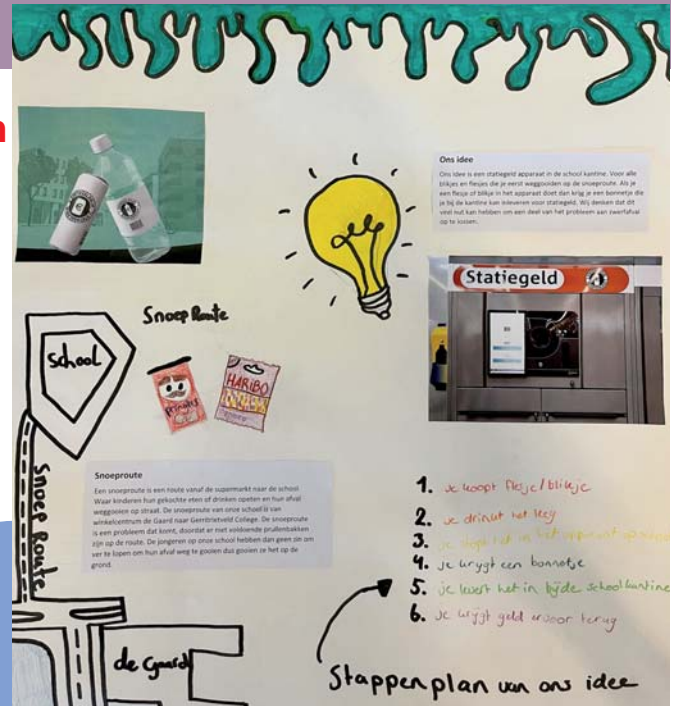 n
Ons idee
Ons idee is een statiegeld apparaat in de school kantine. Voor alle
blikjes en flesjes die je eerst weggooiden op de snoeproute. Als je
een flesje of blikje in het apparaat doet dan krijg je een bonnetje die
je bij de kantine kan inleveren voor statiegeld. Wij denken dat dit
veel nut kan hebben om een deel van het probleem aan zwerfafval
op te lossen.
Statiegeld
Snoep Route
School
pringles
HARIBO
Snoep Route
Snoeproute
Een snoeproute is een route vanaf de supermarkt naar de school.
Waar kinderen hun gekochte eten of drinken opeten en hun afval
weggooien op straat. De snoeproute van onze school is van
winkelcentrum de Gaard naar Gerritrietveld College. De snoeproute
is een probleem dat komt, doordat er niet voldoende prullenbakken
zijn op de route. De jongeren op onze school hebben dan geen zin om
ver te lopen om hun afval weg te gooien dus gooien ze het op de
grond.
1. je koopt flesje/blikje
2. je drinkt het leeg
3. je stopt het in het
4. je krygt een bonnetje
5. je levert het in bij de schoolkantine
6. je krijgt geld ervoor terug
de Gaard
Stappenplan van ons idee